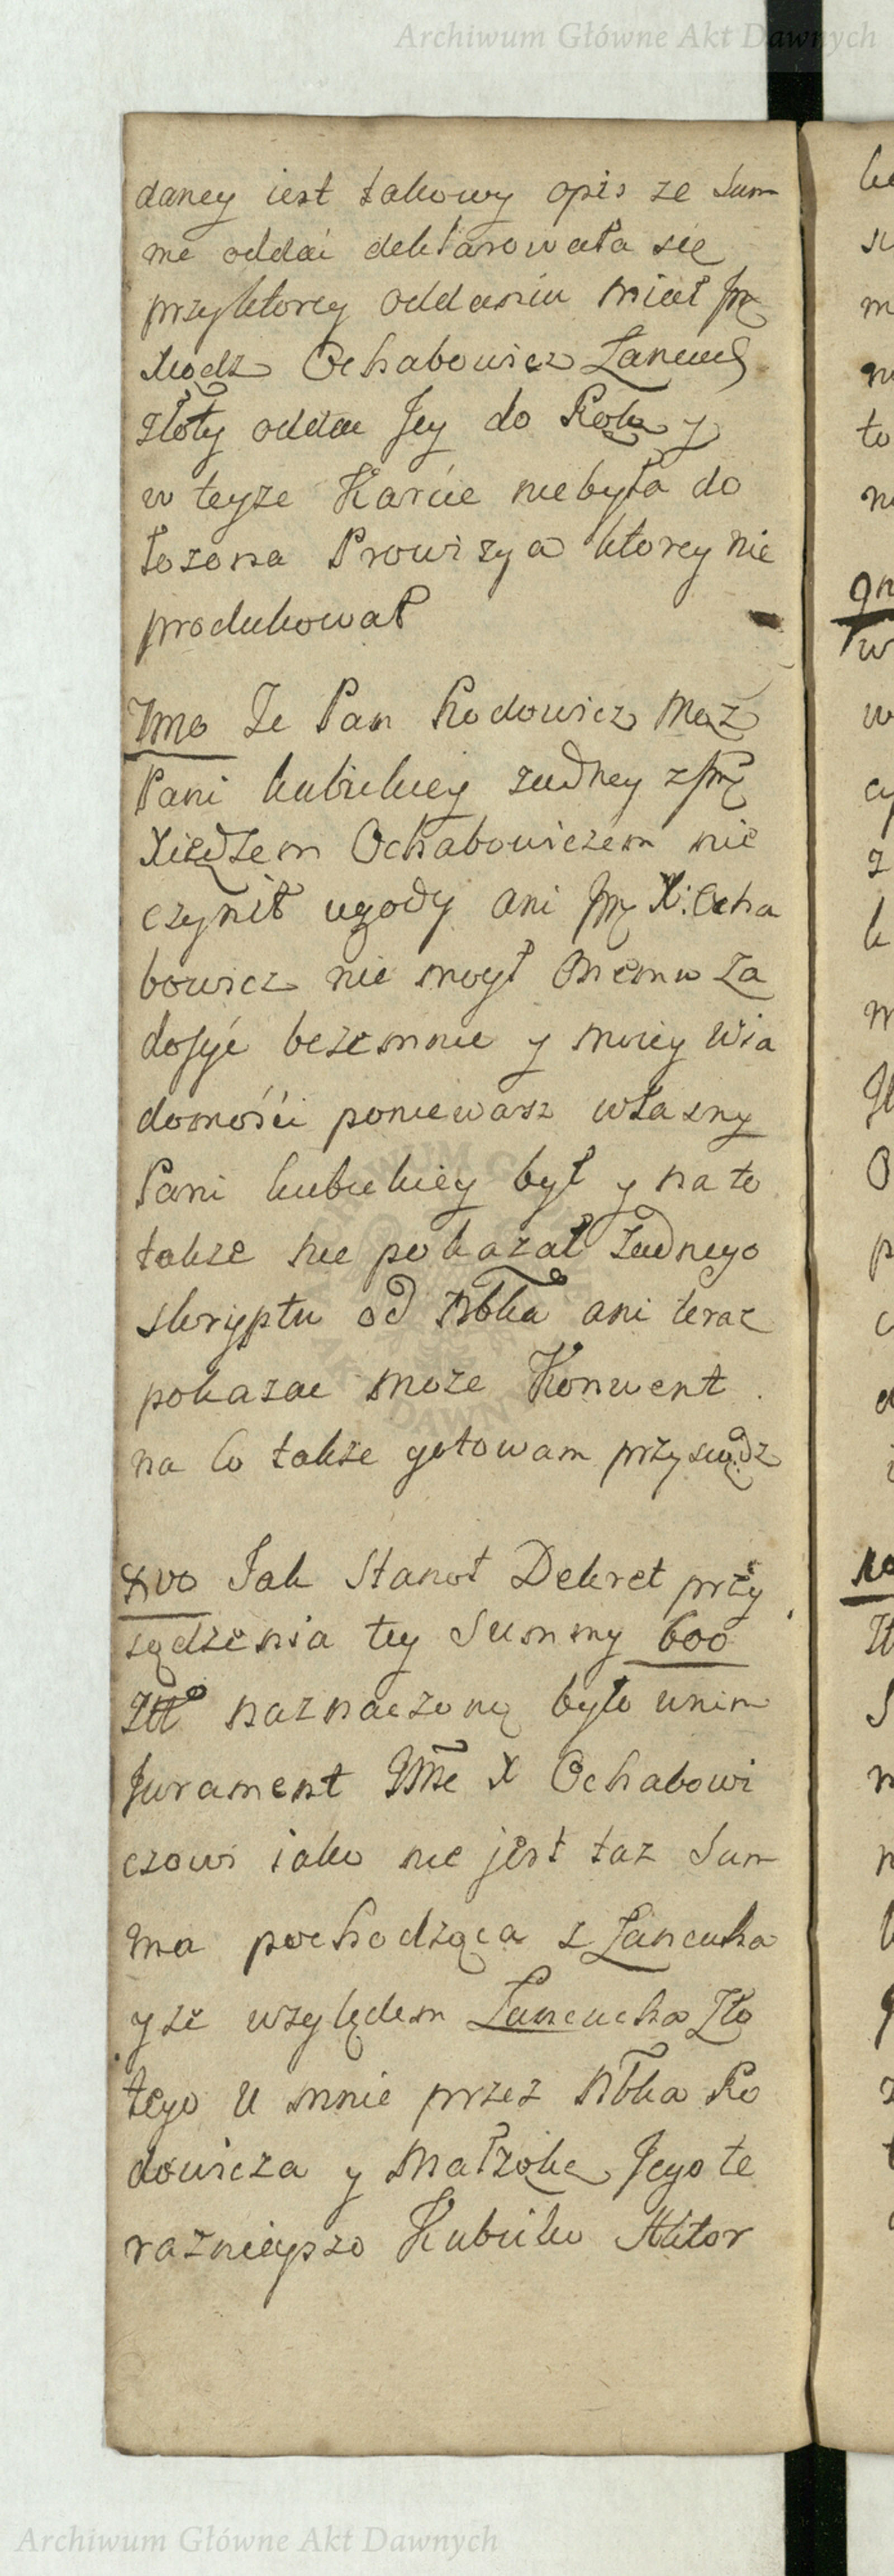 Archiwum Główne Akt Dawnych
daney iest takowy opis ze Sum
me oddać deklarowała się
przyktorey oddaniu miał Jmę
Xiądz Ochabowicz Lancuch
złoty oddac Jey do Rąk y
w teyze Karcie niebyła do
łozona Prowizya ktorey nie
produkował
Imo Ze Pan Rodowicz Mąz
Pani kubickiey zadney z Jmę
Xiędzem Ochabowiczem nie
czynił ugody ani Jmę X: Ocha
bowicz nie mogł Onemu Za
dosyć bezemnie y moiey Wia
domości poniewasz własny
Pani kubickiey był y na to
takze nie pokazał Zadnego
skryptu od Nbka ani teraz
pokazac może Konwent.
na Co takze gotowam przysiądz
Xvo Jak Stanoł Dekret przy
sądzenia tey Summy 600
Złł naznaczoną było wnim
Jurament JMe X Ochabowi
czowi iako nie jest taz Sum
ma pochodząca z Lancuha
y ze względem Lancucha Zło
tego U mnie przez Nbka Ro
dowicza y Małzokę Jego te
raznieyszo Kubicko Aktor
Archiwum Główne Akt Dawnych